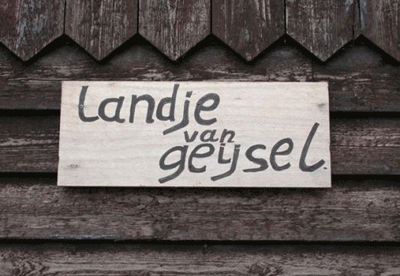 Landje
van
geijsel.